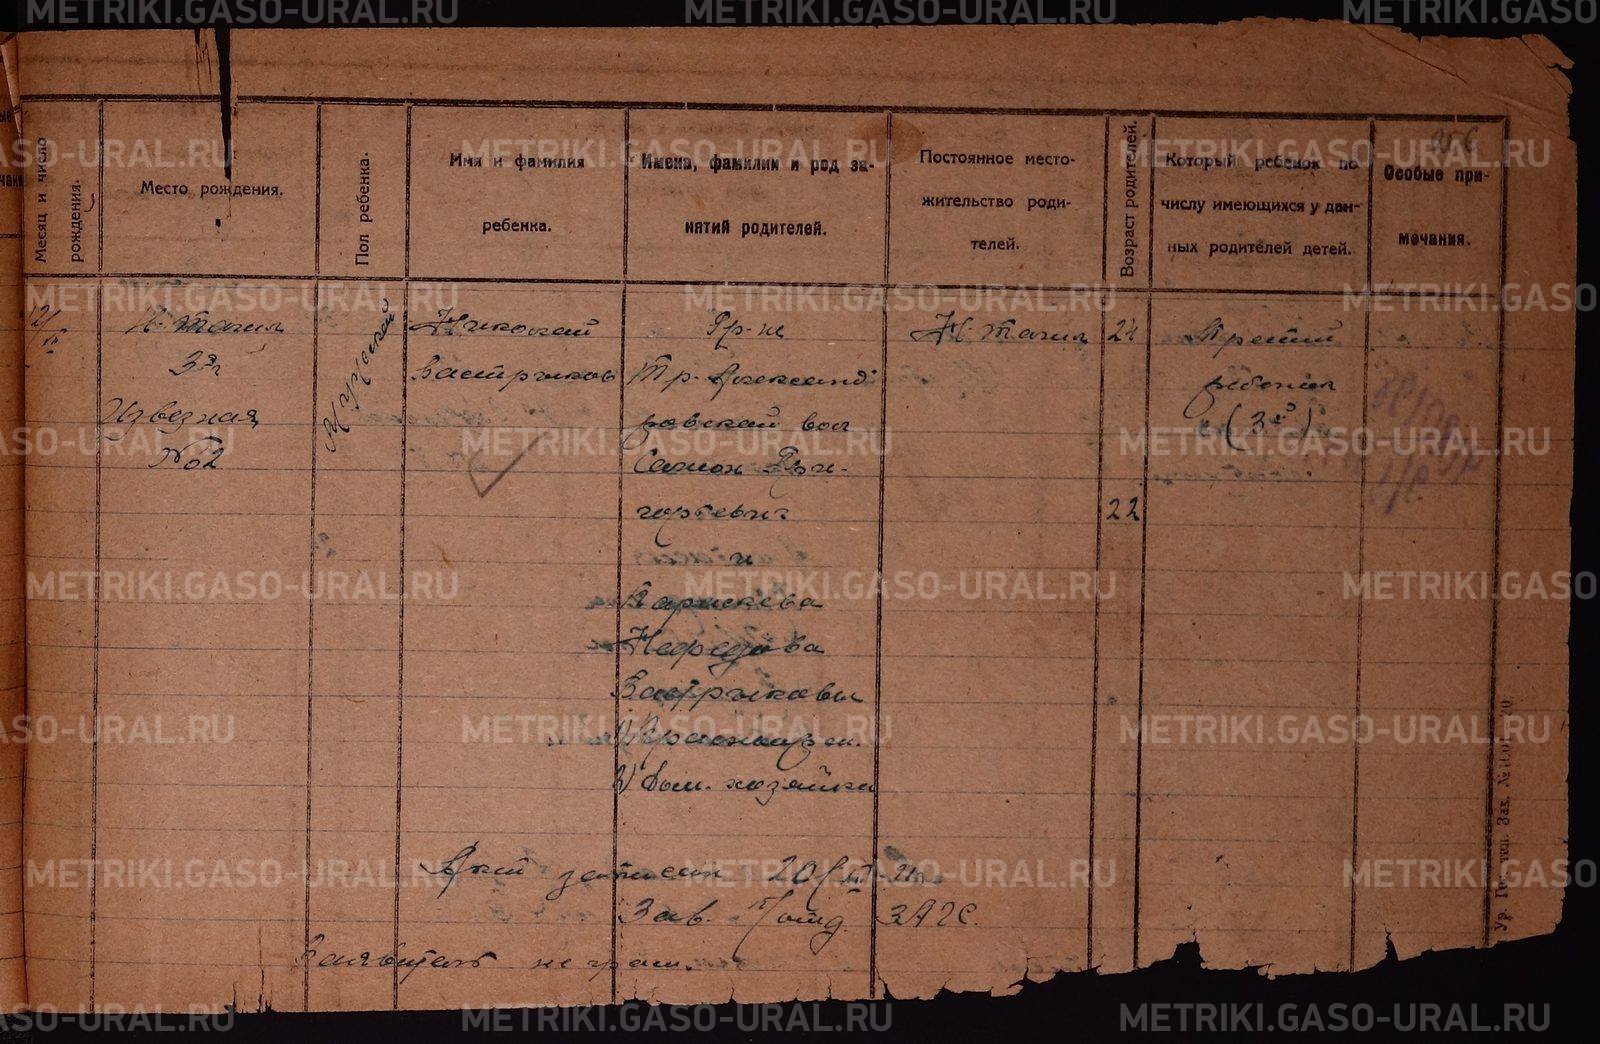 METRIKI.GASO-URAL.RU
356
Месяц и число рождения.
Место рождения.
Пол ребенка.
Имя и фамилия ребенка.
Имена, фамилии и род занятий родителей.
Постоянное местожительство родителей.
Возраст родителей.
Который ребенок по числу имеющихся у данных родителей детей.
Особые примечания.
Н-Тагил
3-я
№ 2
Мужской
Николай
Вастрыков
Гр-не
Тр-Александ
ровской вол
Семен Гри-
горьевич
и
Нефедова
Вастрыковы
1) Красноарм.
2) Дом. хозяйка
Н-Тагил
24
22
Третий
ребенок
(3й)
Акт записан 20/
Зав. П/отд. ЗАГС.
Заявитель не грам.
Ур. Г тип. Зак. №